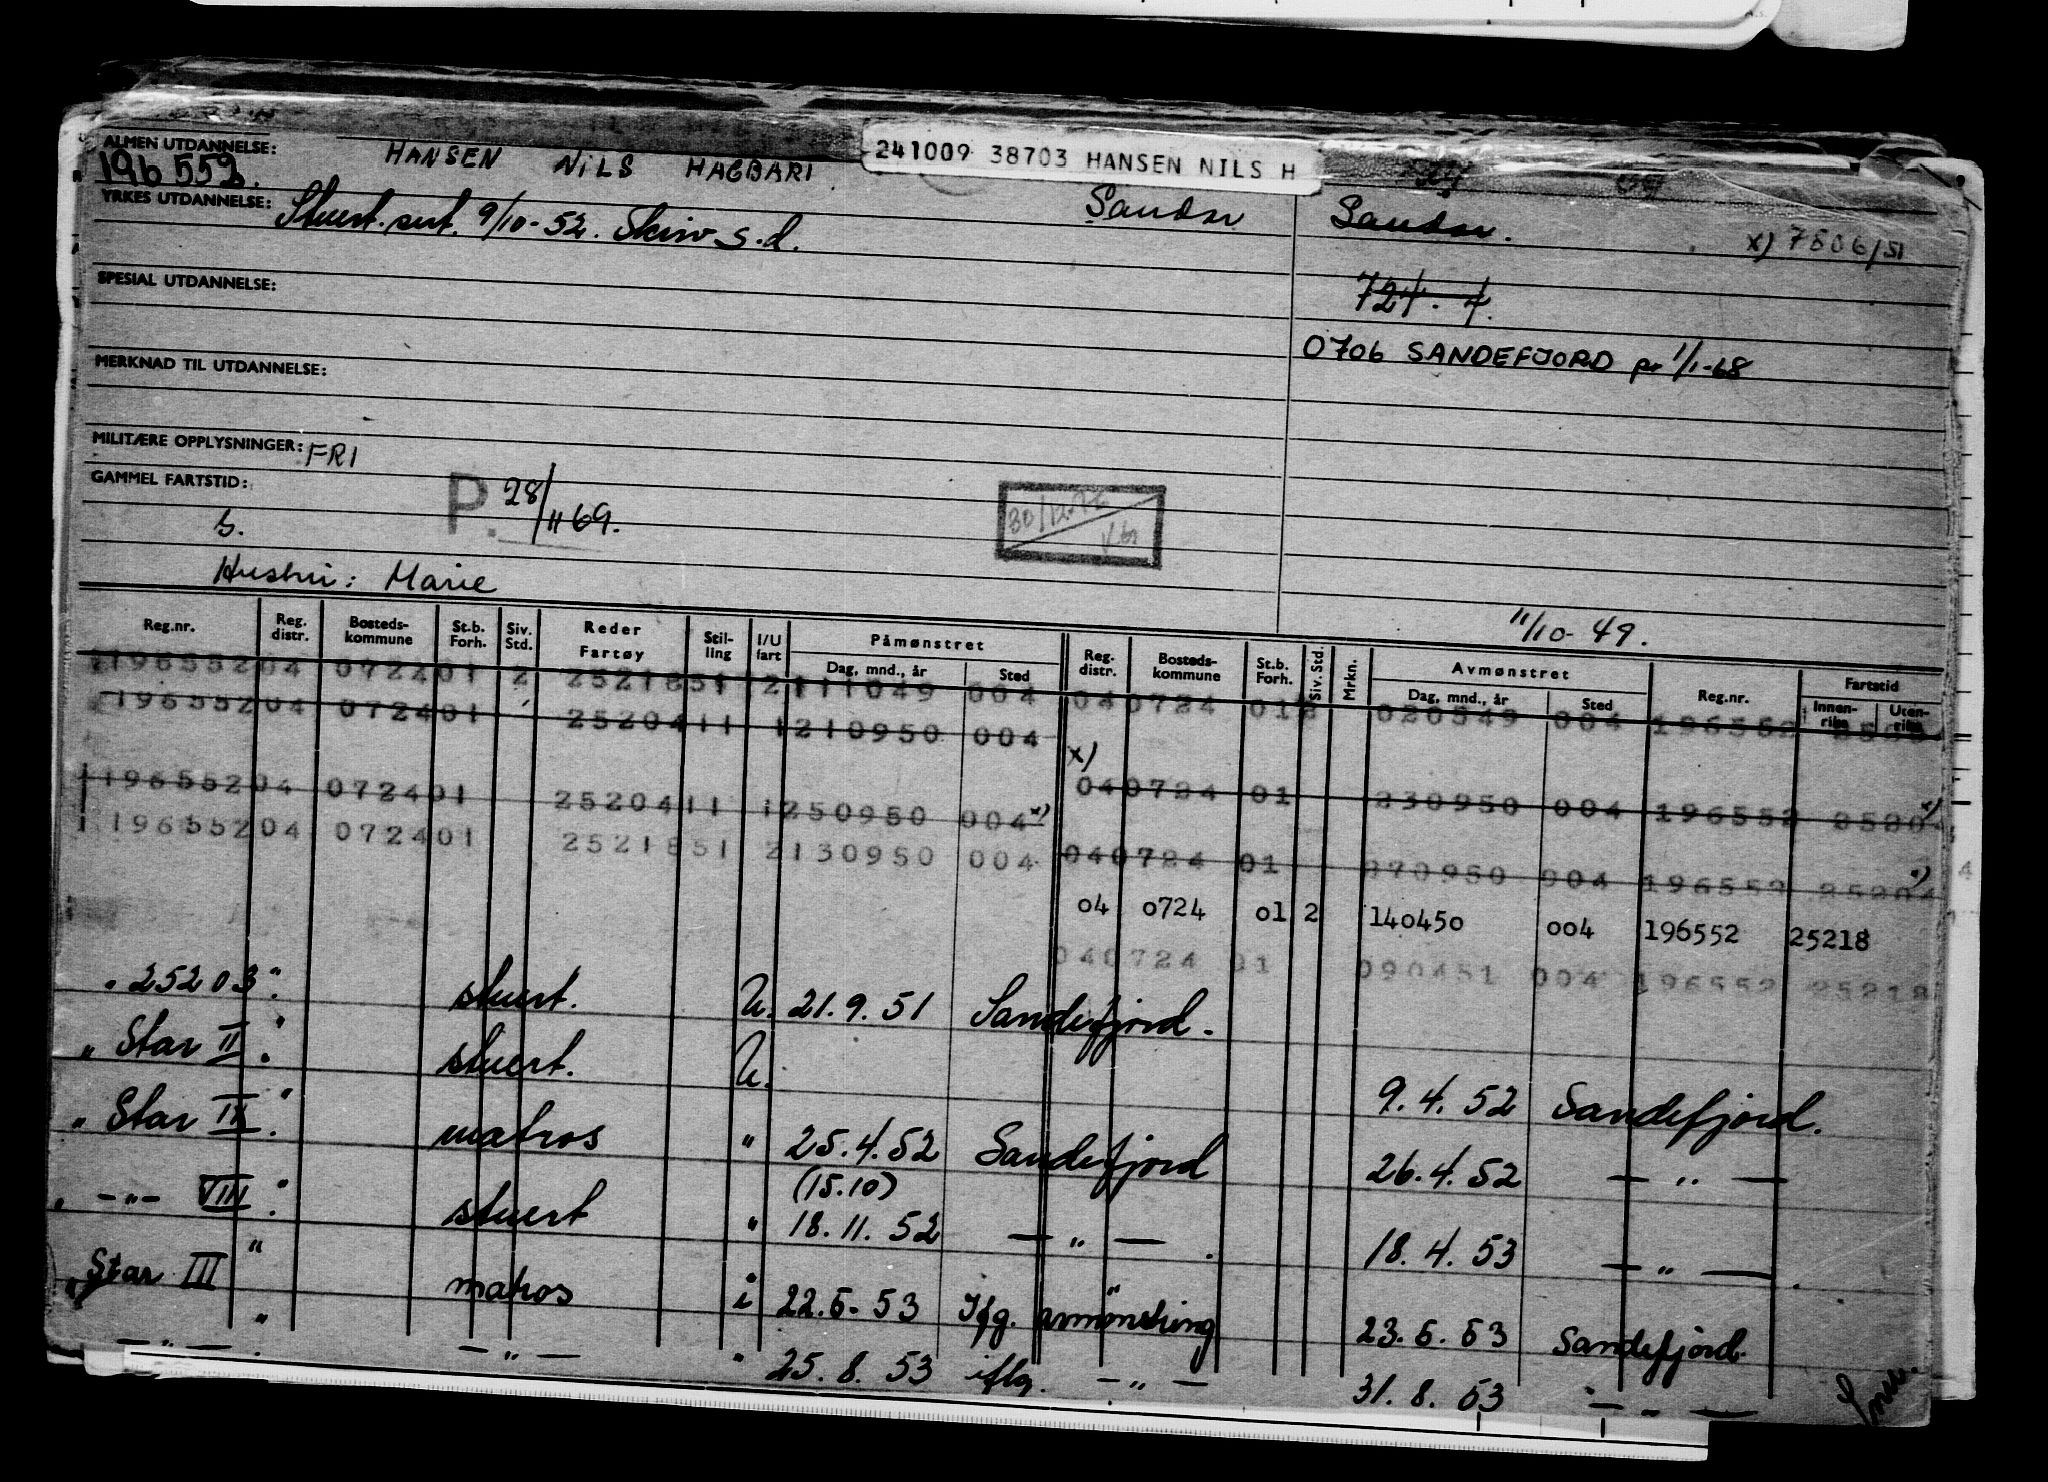 ALMEN UTDANNELSE: HANSEN NILS HAGBART 241009 38703 HANSEN NILS H
196 552.
YRKES UTDANNELSE: Stuert.sert. 9/10-52. Skirv s.d. Sandar Sandar. x) 7806/51
SPESIAL UTDANNELSE: 724. 4.
0706 SANDEFJORD pr 1/1-68
MERKNAD TIL UTDANNELSE:
MILITÆRE OPPLYSNINGER: FRI
GAMMEL FARTSTID: P. 28/11 69. 30/12-72
s.
Hustru: Marie
11/10-49.
Reg.nr. Reg. distr. Bosteds-kommune St.b. Forh. Siv. Std. Reder Fartøy Stil-ling I/U fart Påmønstret Dag, mnd., år Sted Reg. distr. Bosteds-kommune St.b. Forh. Siv. Std. Mrkn. Avmønstret Dag, mnd., år Sted Reg.nr. Fartstid Innen-riks Uten-riks
1 196552 04 0724 01 2 25218 51 2 111049 004 04 0724 01 2 020549 004 196552
196552 04 0724 01 25204 11 1 210950 004
x)
1 196552 04 0724 01 25204 11 1 250950 004 x) 04 0724 01 230950 004 196552 25204 x)
1 196552 04 0724 01 25218 51 2 130950 004 04 0724 01 270950 004 196552 25204 x)
04 0724 01 2 140450 004 196552 25218
04 0724 01 090451 004 196552 25218
" 25203 " stuert. U. 21.9.51 Sandefjord.
" Star II " stuert. U. 9.4.52 Sandefjord.
" Star II " matros " 25.4.52 Sandefjord 26.4.52 — " —
(15.10)
" —"— VIII " stuert " 18.11.52 — " — . 18.4.53 — " — .
" Star III " matros i 22.5.53 Ifg. avmønstring 23.5.53 Sandefjord.
— " — " — " — " 25.8.53 iflg. — " — 31.8.53 — " —
Snu.